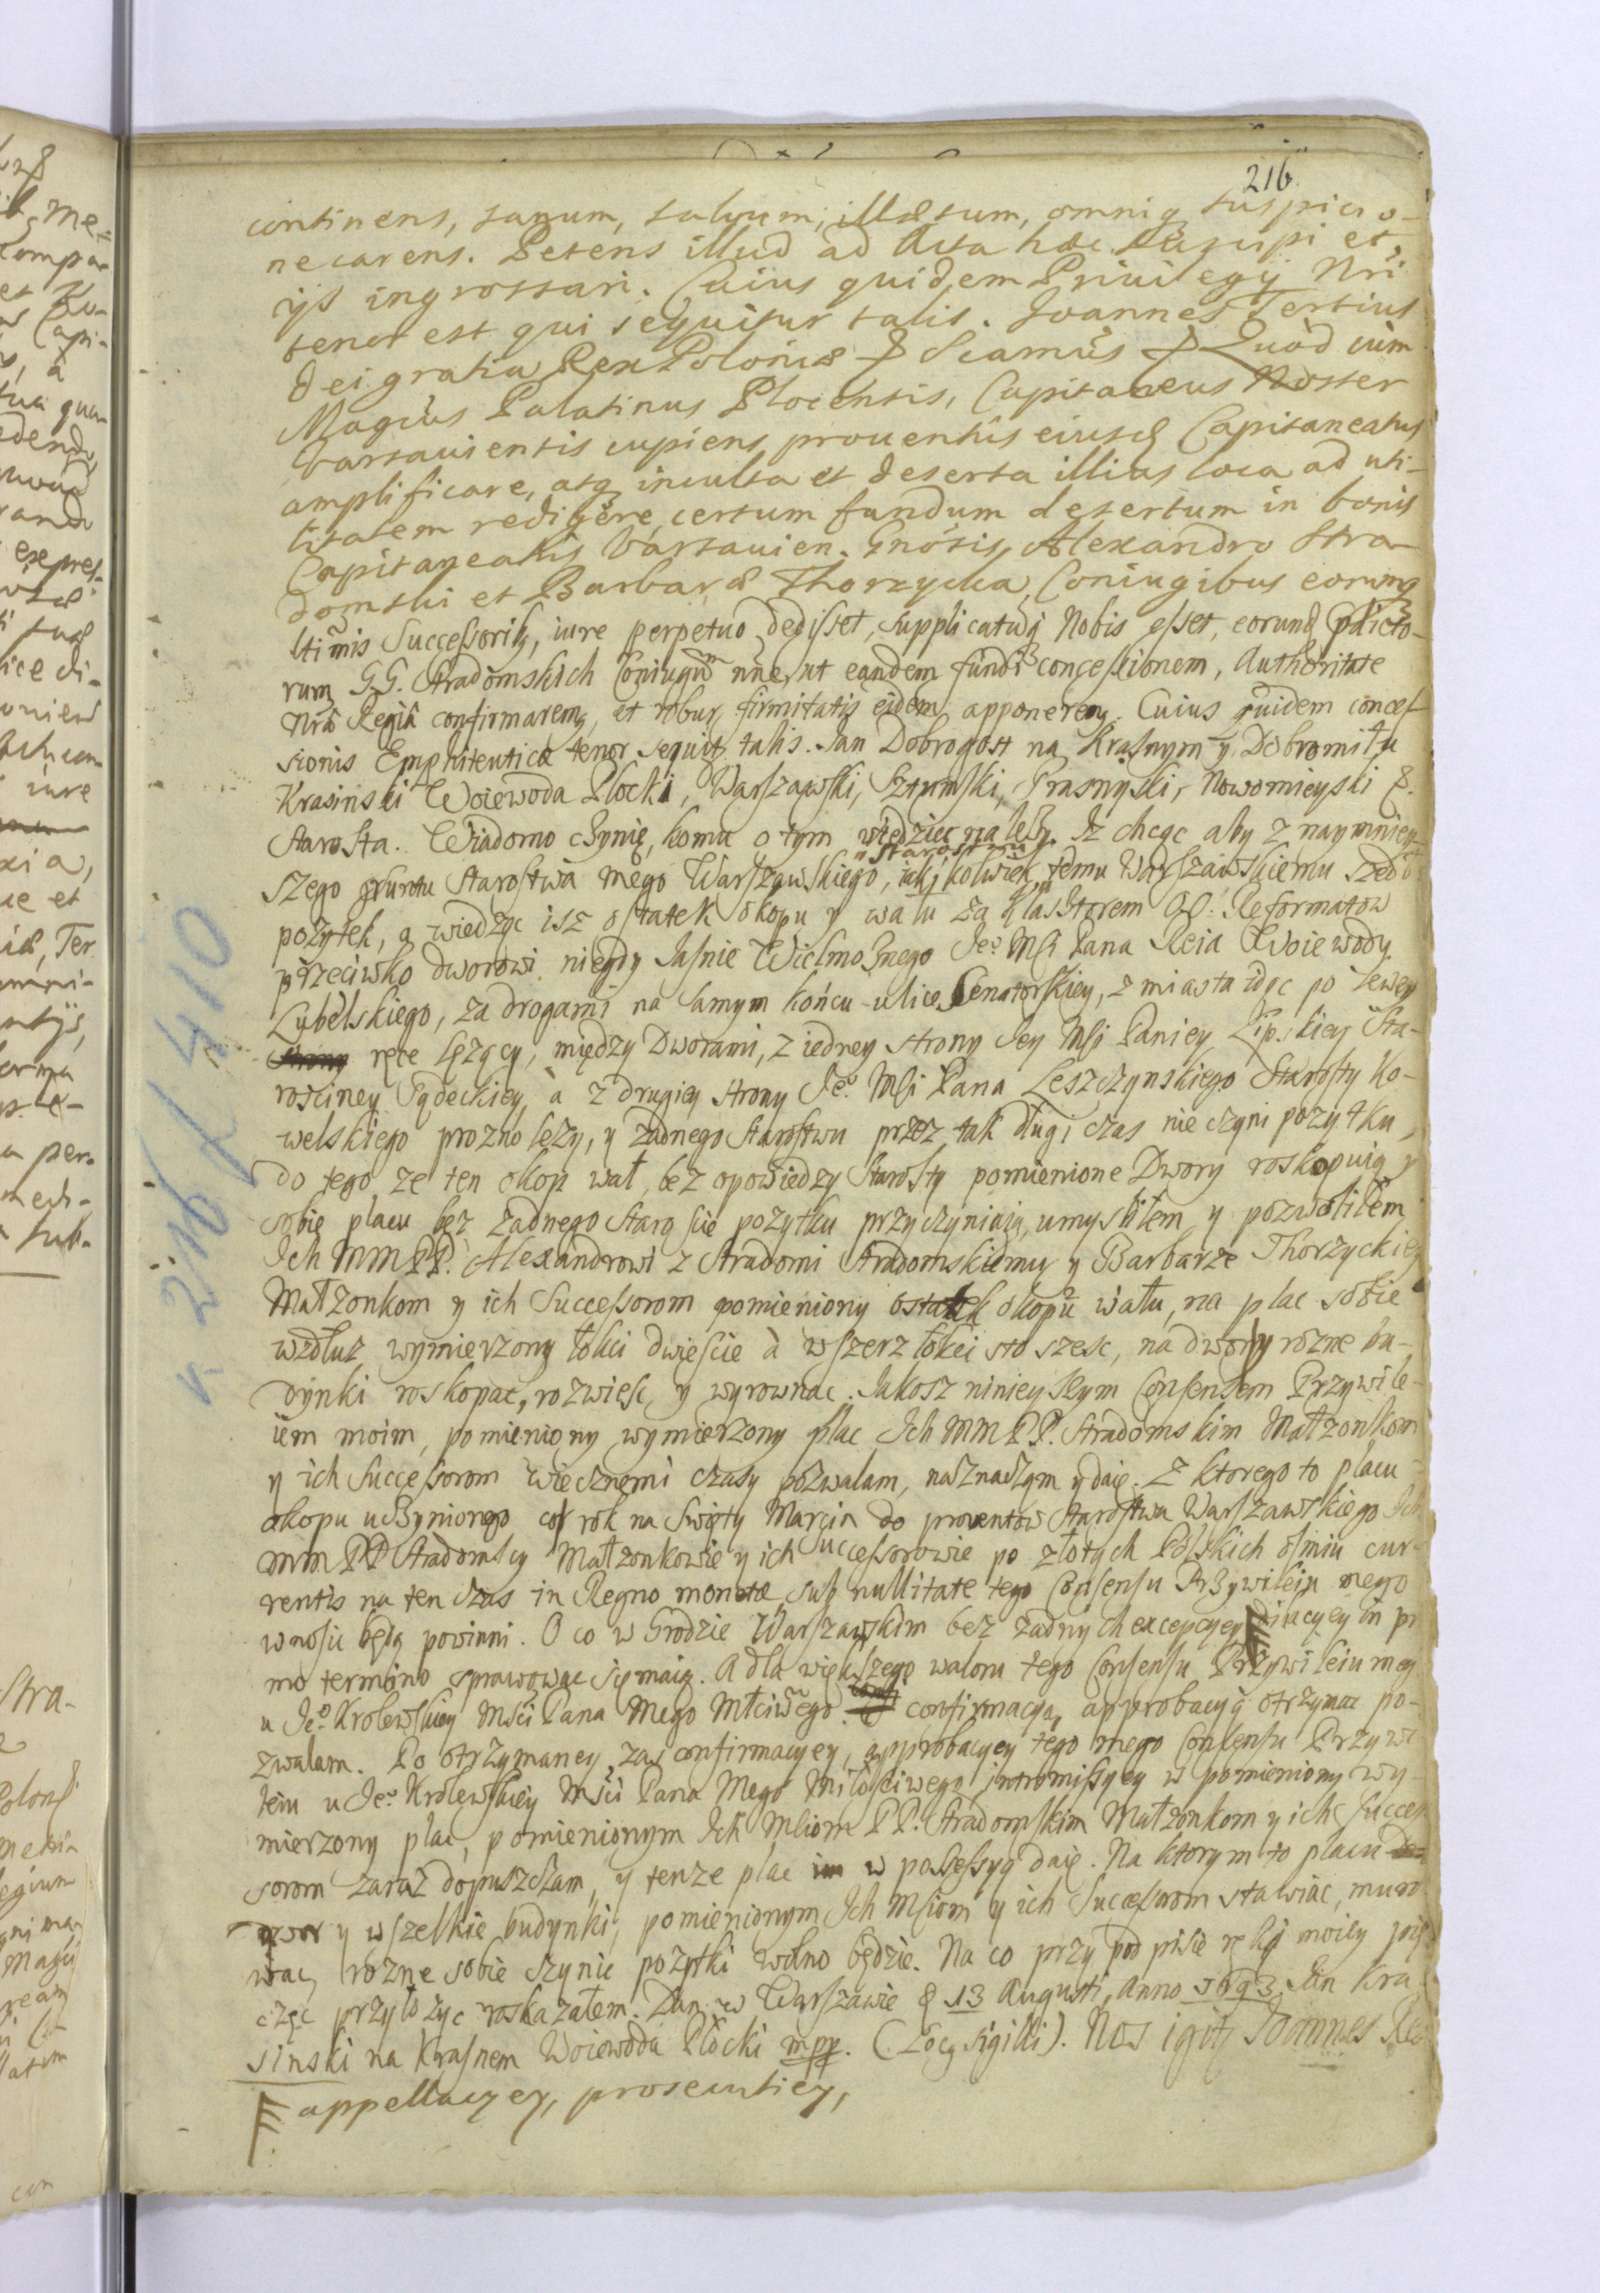 216
continens, sanum, salvum, illæsum, omniq suspicio-
ne carens. Petens illud ad Acta hæc suscipi et
ijs ingrossari. Cuius quidem Privilegij Nri
tenor est qui sequitur talis. Joannes Tertius
Dei gratia Rex Poloniæ & Scamus & Quod cum
Magcus Palatinus Plocensis, Capitaneus Noster
Varsaviensis cupiens proventus eiusd Capitaneatus
amplificare, atq inculta et deserta illius loca ad uti-
litatem redigere, certum fundum desertum in bonis
Capitaneatus Varsavien. Gnosis Alexandro Stra-
domski et Barbaræ Thorzycka Coniugibus eorumq
ltimis Successoribq, iure perpetuo dedisset, supplicatumq Nobis esset, eorund pdicto-
rum G.G. Stradomskich Coniugum nne, ut eandem fundi concessionem, Authoritate
Nrâ Regiâ confirmaremq, et robur firmitatis eidem apponeremq. Cuius quidem conces-
sionis Emphiteuticæ tenor sequit talis. Jan Dobrogost na Krasnym y Dobromilu
Krasinski Woiewoda Płocki, Warszawski, Sztumski, Prasnyski, Nowomieyski &.
Starosta. Wiadomo czynię, komu o tym wiedziec nalezy. Iż chcąc aby z naymniey-
staroswu
szego gruntu Starostwa mego Warszawskiego, iakikolwiek temu Warszawskiemu szedł
pozytek, a wiedząc isz ostatek okopu y wału za Klasztorem OO. Reformatow
przeciwko dworowi niegdy Jasnie Wielmoznego Jeo Msi Pana Reia Woiewody
Lubelskiego, za drogami na samym końcu ulice Senatorskiey, z miasta idąc po lewey
ręce lęzący, między Dworami, z iedney strony Jey Msi Paniey Lipskiey Sta-
rosciney Sądeckiey, à z drugiey strony Jeo Msi Pana Leszczynskiego Starosty Ko-
welskiego prozno lezy, y zadnego Starostwu przez tak długi czas nie czyni pozytku,
do tego ze ten okop wał, bez opowiedzy Starosty pomienione Dwory roskopuią y
sobie placu bez zadnego Staroscie pozytku przyczyniaią, umysliłem y pozwoliłem
Ich MM PP. Alexandrowi z Stradomi Stradomskiemu y Barbarze Thorzyckiey
Małzonkom y ich Successorom pomieniony ostatek okopu wału, na plac sobie
wzdłuz wymierzony łokci dwieście à wszerz łokci sto szesc, na dwory rozne bu-
dynki roskopac, rozwiesc y wyrownac. Jakosz ninieyszym Consensem Przywile-
iem moim, pomieniony wymierzony plac Ich MM PP. Stradomskim Małzonkom
y ich Successorom wiecznemi czasy pozwalam, naznaczam y daię. Z ktorego to placu
okopu uczynionego co rok na Swięty Marcin do proventów Starostwa Warszawskiego Ich
MM PP Stradomscy Małzonkowie y ich Successorowie po złotych Polskich osmiu cur-
rentis na ten czas in Regno monetæ, sub nullitate tego Consensu Przywileiu mego
wnosic będą powinni. O co w Grodzie Warszawskim bez zadnych excepcyey dilacyey in pri
mo termino sprawowac się maią. A dla większego waloru tego Consensu Przywileiu mego
u Jeo Krolewskiey Msci Pana Mego Młciwego confirmacyą, approbacyą otrzymac po-
zwalam. Po otrzymaney zas confirmacyey, approbacyey tego mego Consensu Przywi-
leiu u Jeo Krolewskiey Msci Pana Mego Miłosciwego intromissyey w pomieniony wy-
mierzony plac, pomienionym Ich Msciom PP. Stradomskim Małzonkom y ich Succes-
sorom zaraz dopuszczam, y tenze plac w possessyą daię. Na ktorym to placu
dwor y wszelkie budynki, pomienionym Ich Msiom y ich Successorom stawiac, muro-
wac, rozne sobie czynic pozytki wolno będzie. Na co przy podpisie ręki moiey pie-
częc przyłozyc roskazałem. Dan w Warszawie d 13 Augusti, Anno 1693 Jan Kra-
sinski na Krasnem Woiewoda Płocki mpp. (Locq sigilli). Nos igitq Joannes Rex
appellacyey, prosecutiey,
v. 216 / 410